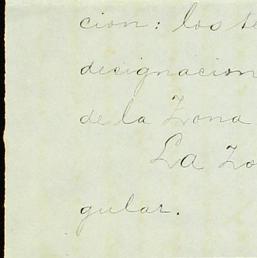 cion: los te
designacion
de la Zona
La Zo
gular.